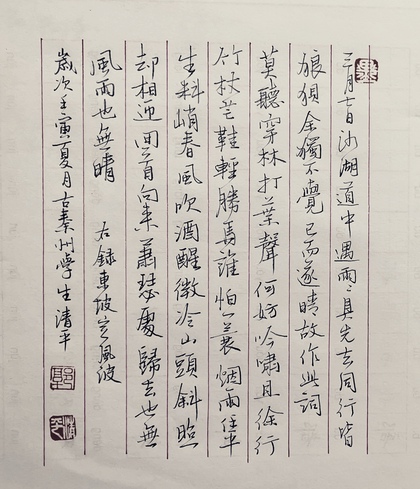 三月七日沙湖道中遇雨〻具先去同行皆
狼狽余獨不覺已而遂晴故作此詞
莫聽穿林打葉聲何妨吟嘯且徐行
竹杖芒鞋輕勝馬誰怕一蓑烟雨任平
生料峭春風吹酒醒微冷山頭斜照
却相迎回首向來蕭瑟處歸去也無
風雨也無晴 右錄東坡定風波
歲次壬寅夏月古秦州學生清平